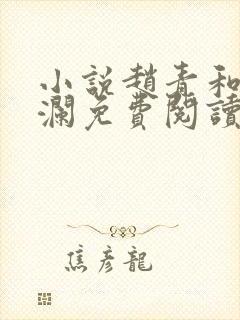 小說趙青和
瀾免費閱讀
焦彥龍